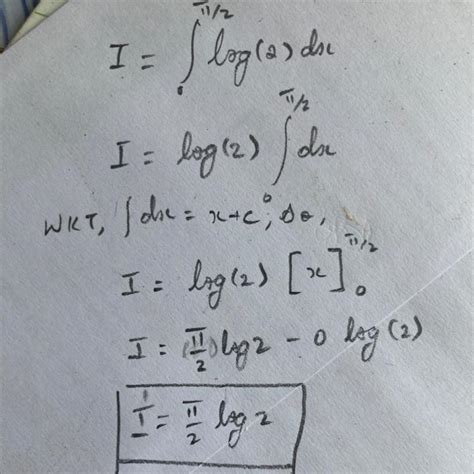 I = ∫₀^π/2 log(2) dx
I = log(2) ∫₀^π/2 dx
WKT, ∫dx = x+c, so,
I = log(2) [x]₀^π/2
I = π/2 log2 - 0 log(2)
I = π/2 log 2